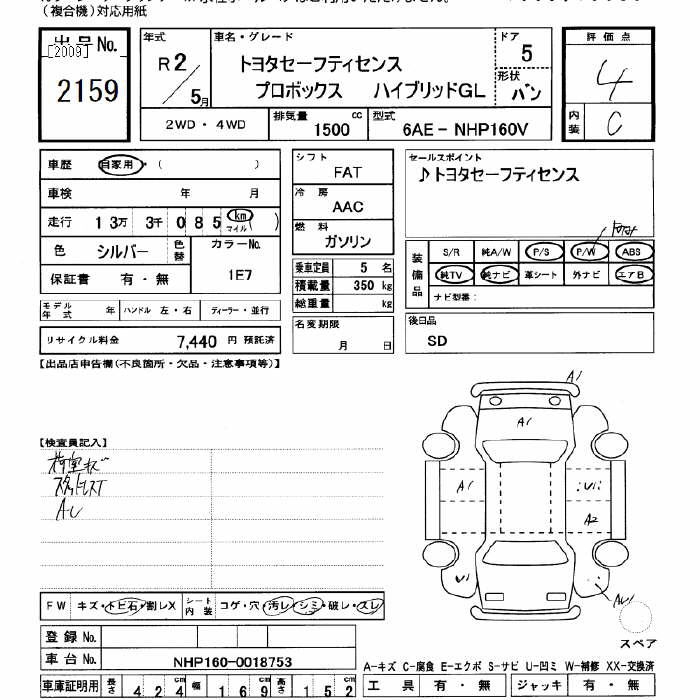 (複合機)対応用紙
出品No.
[2009]
2159
年式
R2/5月
車名・グレード
トヨタセーフティセンス
プロボックス ハイブリッドGL
ドア
5
形状
バン
評価点
4
内装
C
2WD・4WD
排気量
1500 cc
型式
6AE-NHP160V
車歴 自家用・( )
車検 年 月
走行 13万 3千 085 km マイル ( )
色 シルバー 色替 カラーNo.
1E7
保証書 有・無
モデル年式 年 ハンドル 左・右 ディーラー・並行
リサイクル料金 7,440 円 預託済
シフト
FAT
冷房
AAC
燃料
ガソリン
乗車定員 5 名
積載量 350 kg
総重量 kg
名変期限
月 日
セールスポイント
♪トヨタセーフティセンス
装備品
S/R 純A/W P/S P/W ABS
純TV 純ナビ 革シート 外ナビ エアB
ナビ型番:
後日品
SD
【出品店申告欄(不良箇所・欠品・注意事項等)】
【検査員記入】
荷室キズ
AU
A1
A1
A1
U1
A2
U1
AU1
スペア
FW キズ・トビ石・割レX シート内装 コゲ・穴・汚レ・シミ・破レ・スレ
登録No.
車台No. NHP160-0018753
A-キズ C-腐食 E-エクボ S-サビ U-凹ミ W-補修 XX-交換済
車庫証明用 長さ 424 cm 幅 169 cm 高さ 152 cm
工具 有・無 ジャッキ 有・無